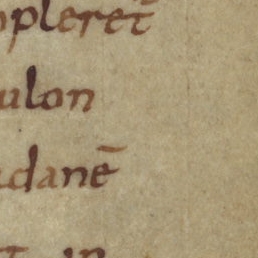 opleret̄
ulon
danē
t in